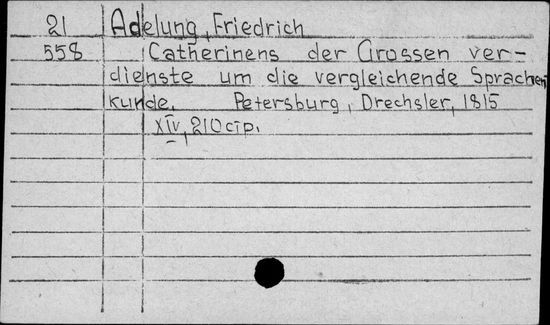 21 Adelung, Friedrich
558 Catherinens der Grossen ver-
dienste um die vergleichende Sprachen
kunde. Petersburg, Drechsler, 1815
XIV, 210 стр.